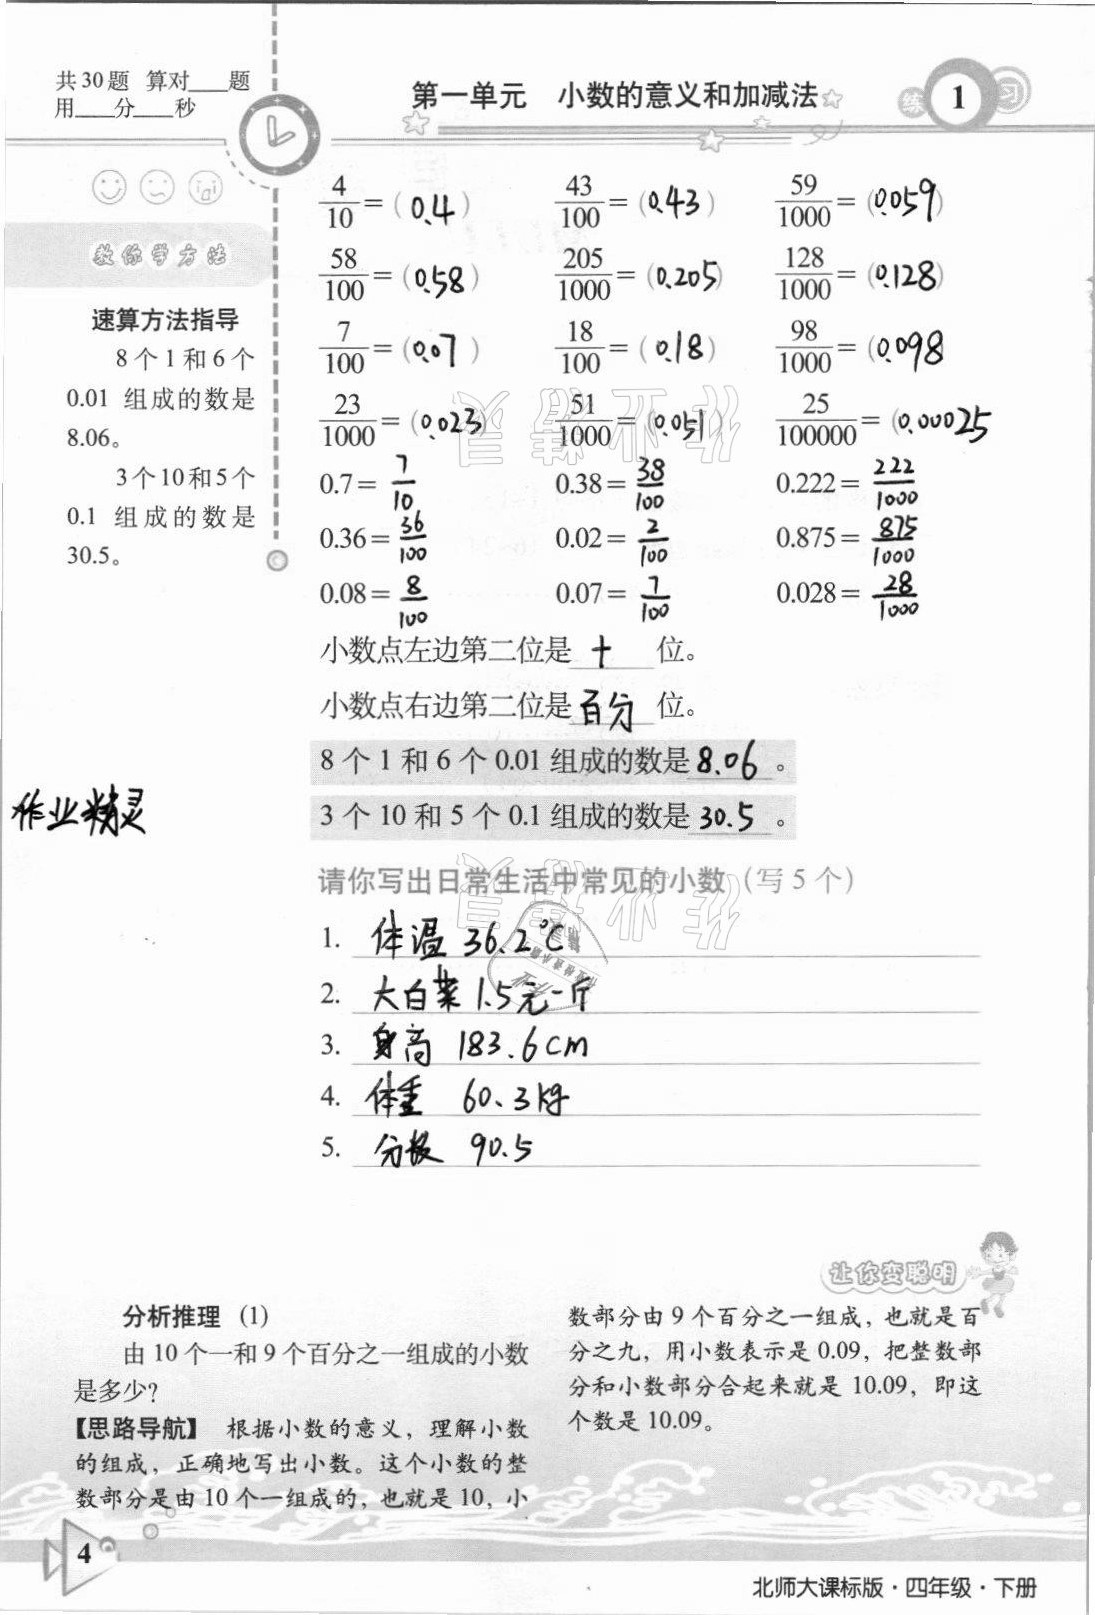 共30题 算对___题
用___分___秒
第一单元 小数的意义和加减法
练 1 习
教你学方法
速算方法指导
8个1和6个
0.01 组成的数是
8.06。
3个10和5个
0.1 组成的数是
30.5。
4/10=(0.4) 43/100=(0.43) 59/1000=(0.059)
58/100=(0.58) 205/1000=(0.205) 128/1000=(0.128)
7/100=(0.07) 18/100=(0.18) 98/1000=(0.098)
23/1000=(0.023) 51/1000=(0.051) 25/100000=(0.00025)
0.7=7/10 0.38=38/100 0.222=222/1000
0.36=36/100 0.02=2/100 0.875=875/1000
0.08=8/100 0.07=7/100 0.028=28/1000
小数点左边第二位是 十 位。
小数点右边第二位是 百分 位。
8个1和6个0.01组成的数是 8.06 。
3个10和5个0.1组成的数是 30.5 。
作业精灵
请你写出日常生活中常见的小数(写5个)
1. 体温 36.2℃
2. 大白菜 1.5元一斤
3. 身高 183.6cm
4. 体重 60.3kg
5. 分数 90.5
作业精灵
作业精灵
让你变聪明
分析推理 (1)
由10个一和9个百分之一组成的小数
是多少?
【思路导航】 根据小数的意义，理解小数
的组成，正确地写出小数。这个小数的整
数部分是由10个一组成的，也就是10，小
数部分由9个百分之一组成，也就是百
分之九，用小数表示是0.09，把整数部
分和小数部分合起来就是10.09，即这
个数是10.09。
4
北师大课标版·四年级·下册